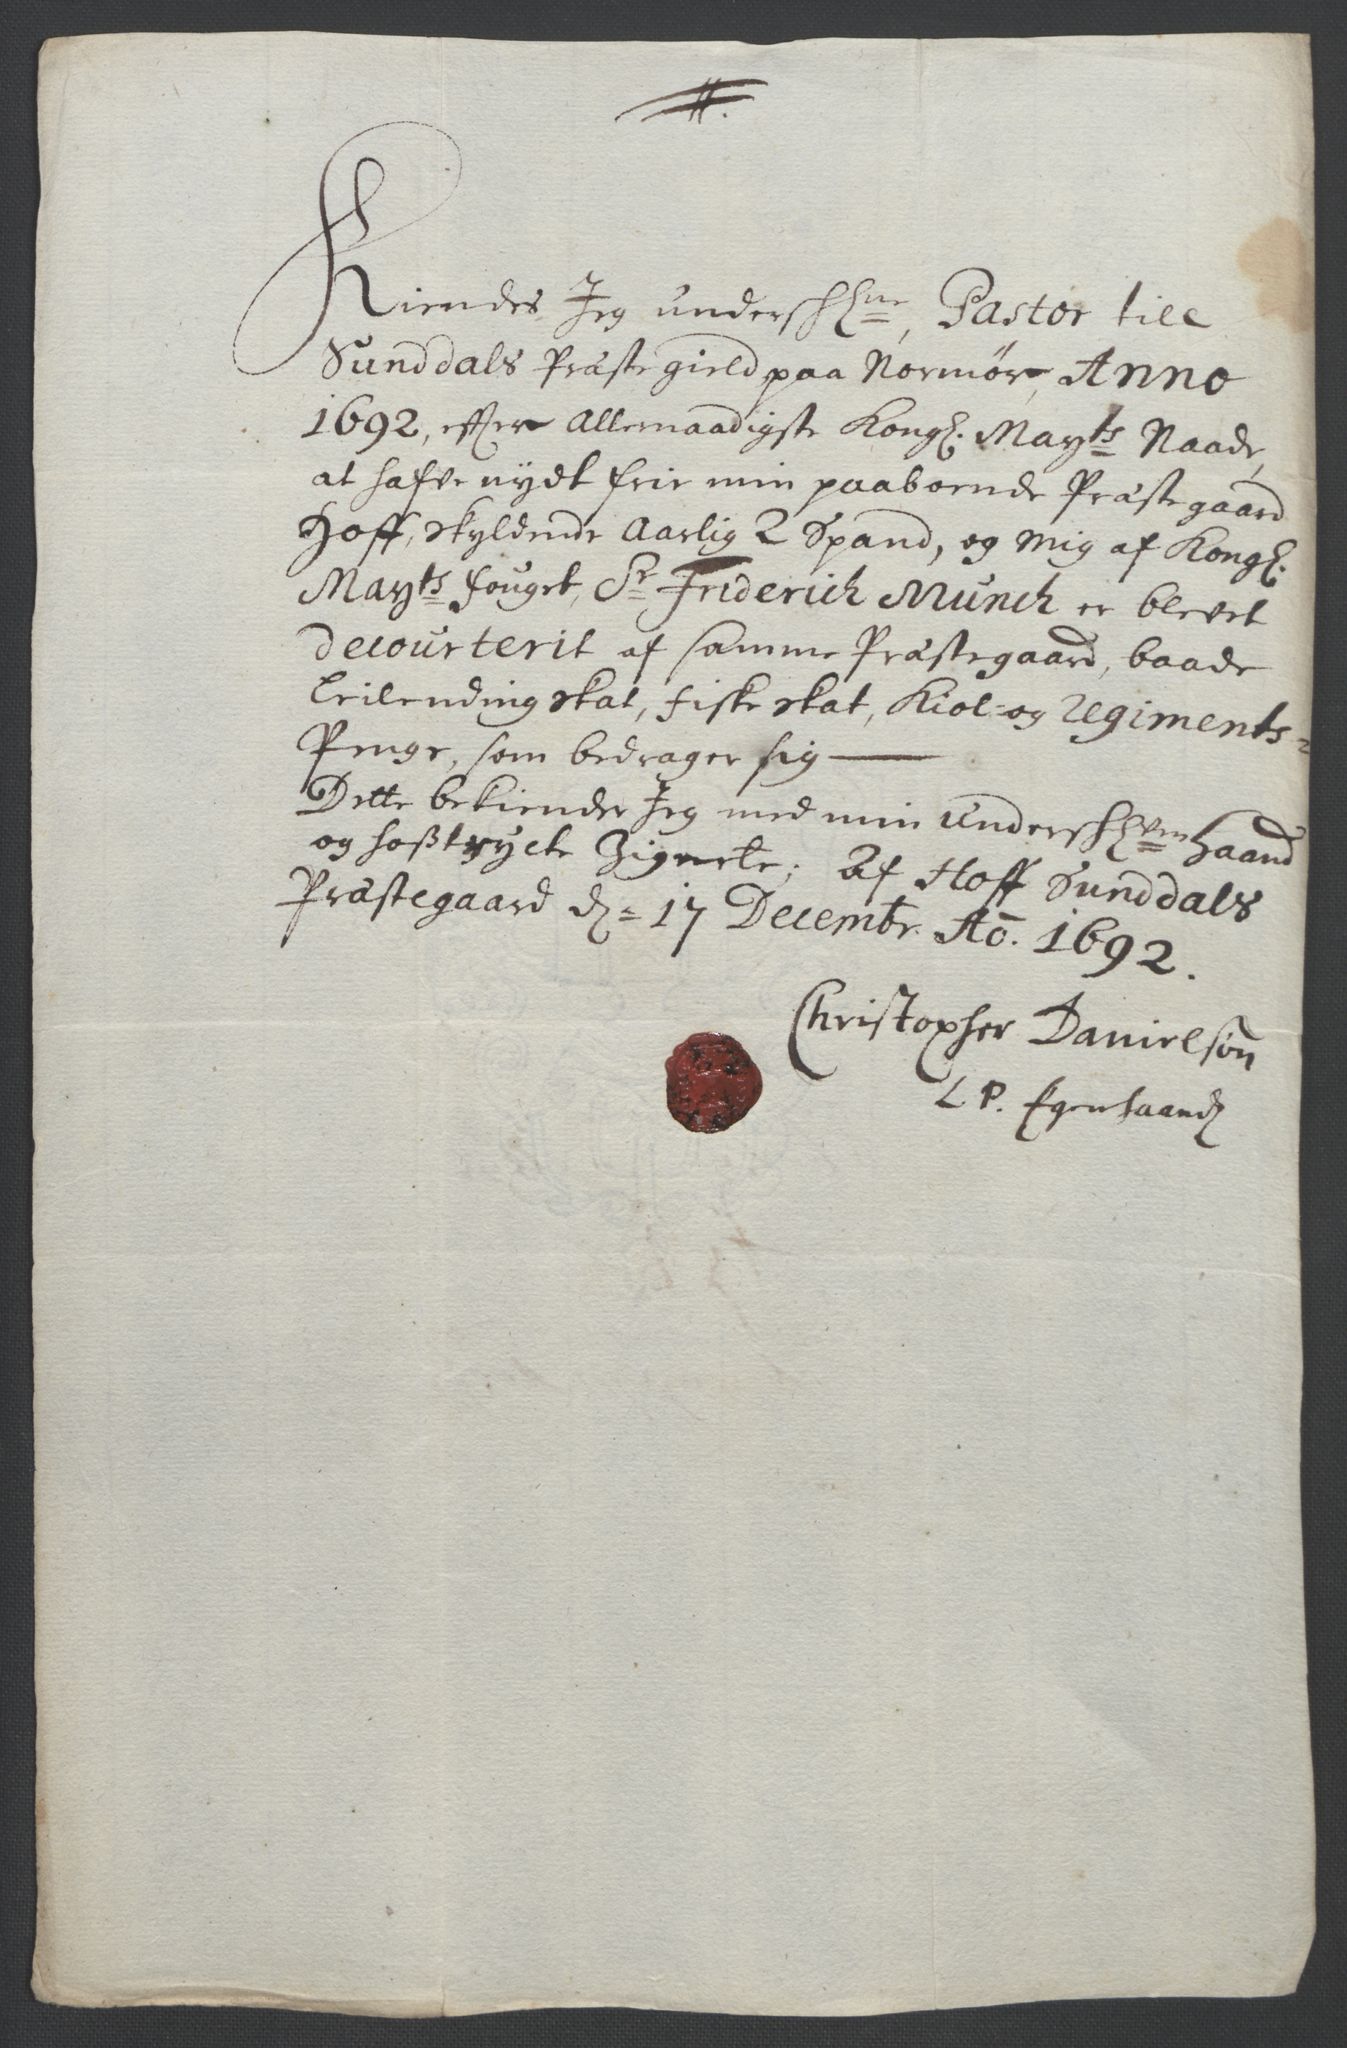 Kiendes Jeg underschfne, Pastor till
Sunddals Præstegield paa Normör, Anno
1692, efter Allernaadigste Kongl. Mayts Naade,
at hafve nydt frie min paaboende Præstegaard
Hoff, skyldende Aarlig 2 Spand, og mig af Kongl.
Mayts fouget, Sr Friderich Munch er blevet
decourterit af samme Præstegaard, baade
Leilending skat, fiske skat, Kiol- og Regiments-
Penge, som bedrager sig
Dette bekiender Jeg med min underschfvene Haand
og hoßtrycte Zignete; Af Hoff Sunddals
Præstegaard d. 17 Decembr. Ao. 1692.
Christopher Danielsön
L P. Egenhaand